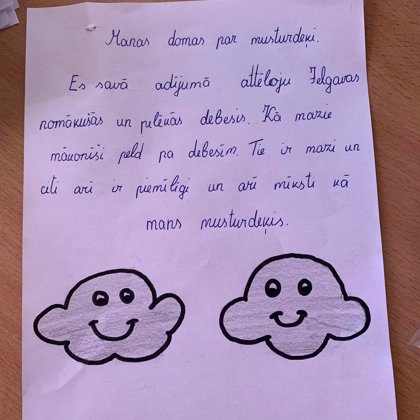 Manas domas par musturdeķi.
Es savā adījumā attēloju Jelgavas
nomākušās un pelēkās debesis. Kā mazie
mākonīši peld pa debesīm. Tie ir mazi un
citi arī ir piemīlīgi un arī mīksti kā
mans musturdeķis.